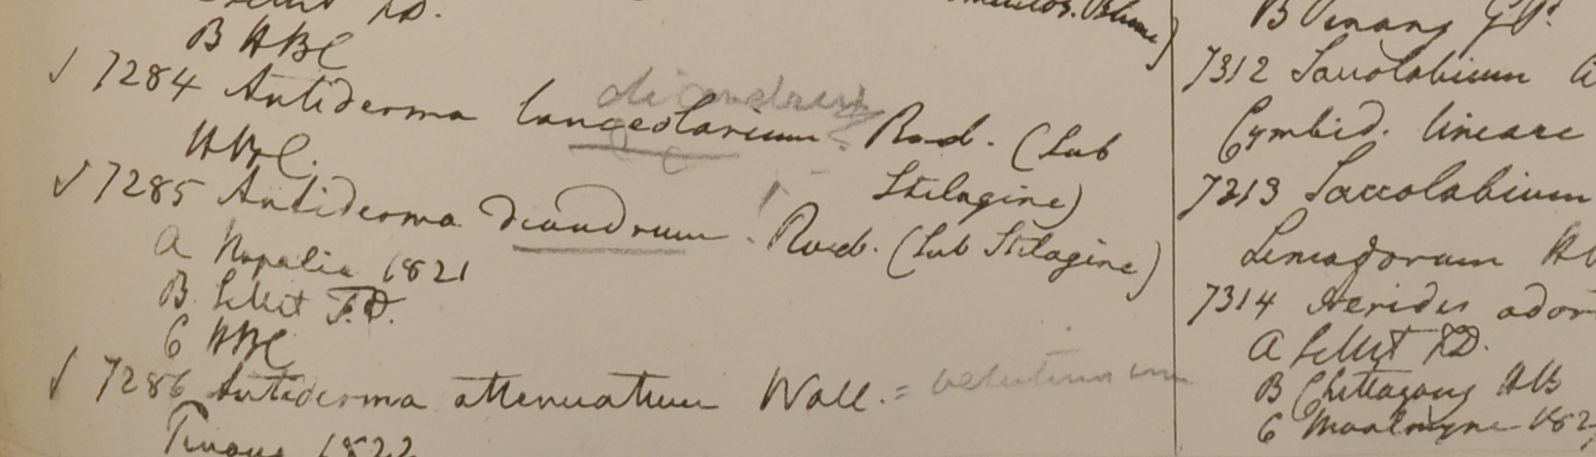 Sillet F.D.
B HBC
✓ 7284 Antiderma lanceolarium Roxb. (Sub
Stilagine)
HBC.
✓ 7285 Antiderma diandrum. Roxb. (Sub Stilagine)
A Napalia 1821
B Sillet F.D.
C HBC
✓ 7286 Antiderma attenuatum Wall. = velutinosum
Penang 1822
Blume)
B Penang G.P.
7312 Saccolabium
Cymbid. lineare
7313 Saccolabium
Limodorum
7314 Aerides odor
A Sillet F.D.
B Chittagong HB
C Moalmyne 182